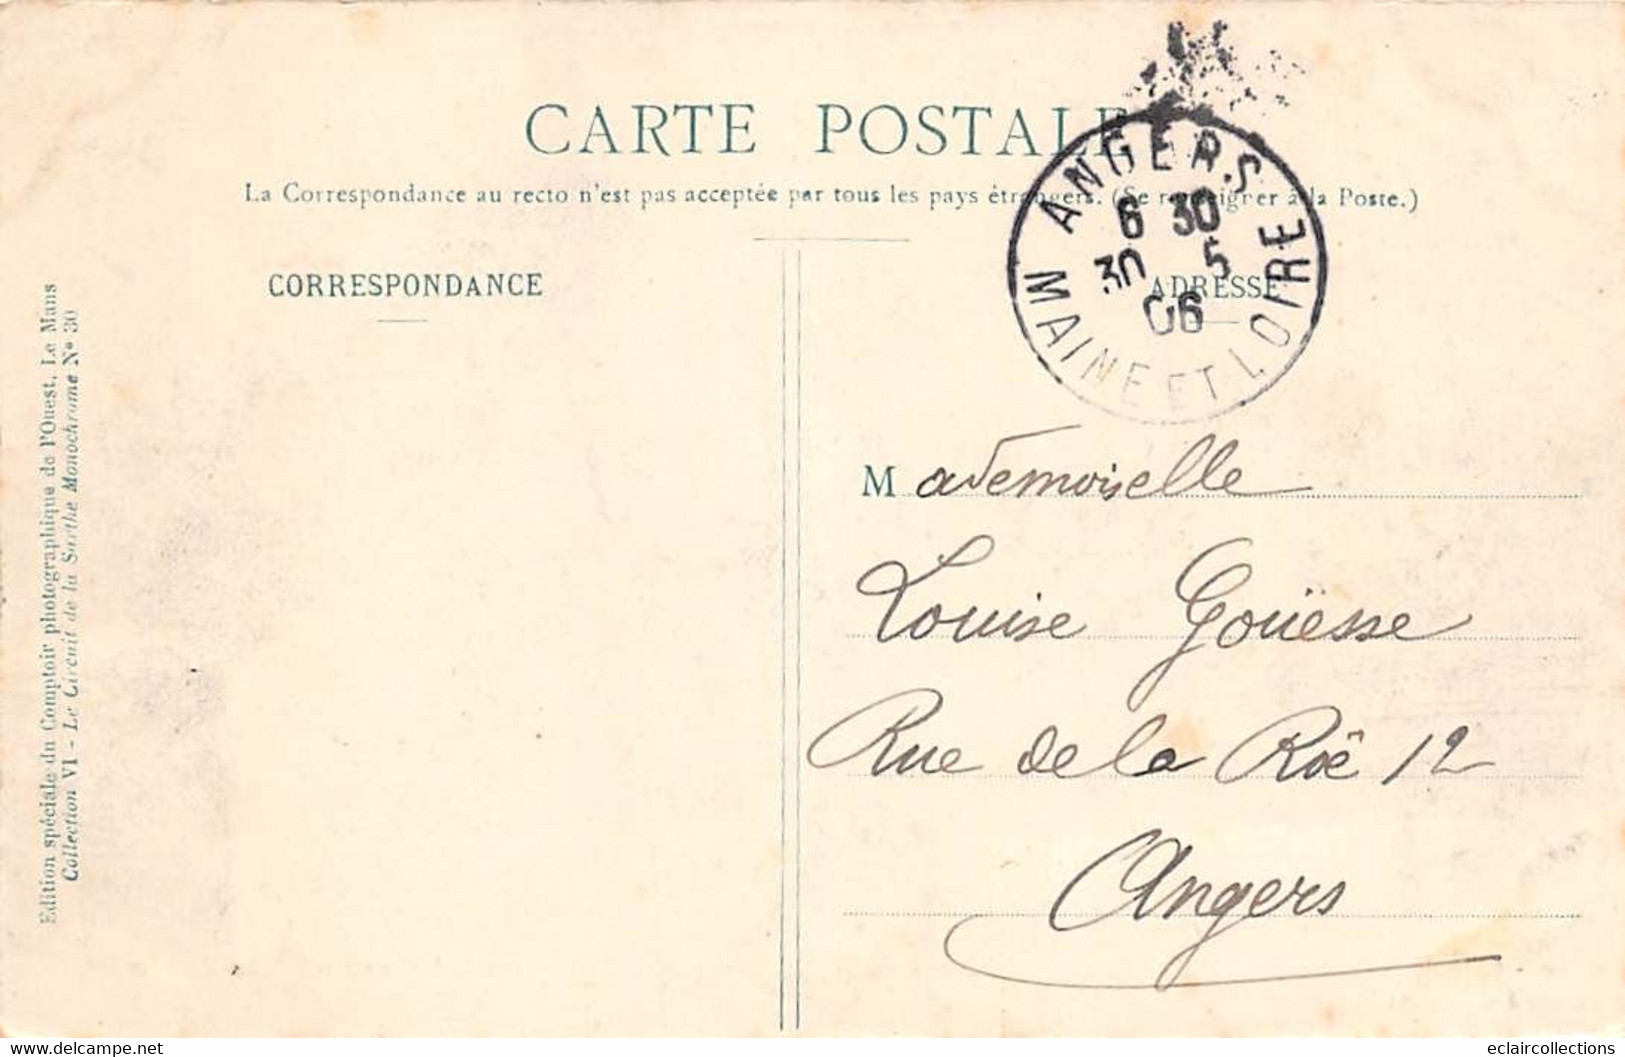 CARTE POSTALE
La Correspondance au recto n'est pas acceptée par tous les pays étrangers. (Se renseigner à la Poste.)
ANGERS
6 30
30 5
06
MAINE ET LOIRE
CORRESPONDANCE
ADRESSE
Mademoiselle
Louise Gouësse
Rue de la Roë 12
Angers
Edition spéciale du Comptoir photographique de l'Ouest, Le Mans
Collection VI - Le Circuit de la Sarthe Monochrome N° 30
www.delcampe.net
eclaircollections